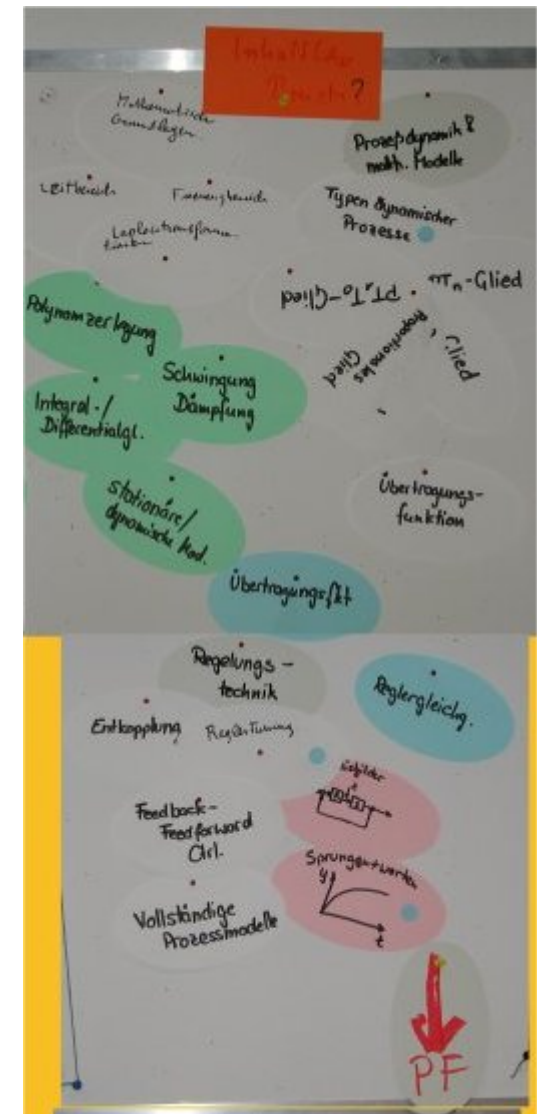 Inhaltliche
?
Mathematische
Grundlagen
Prozeßdynamik &
math. Modelle
Zeitbereich
Frequenzbereich
Typen dynamischer
Prozesse
Laplacetransforma-
tion
-Glied
Tn-Glied
Proportionales
Glied
Glied
Polynomzerlegung
Schwingung
Dämpfung
Integral-/
Differentialgl.
Stationäre/
dynamische Mod.
Übertragungs-
funktion
Übertragungsfkt
Regelungs-
technik
Reglergleichg.
Entkopplung
ReglerTuning
Feedback-
Feedforward
Ctrl.
Sprungantworten
y
t
Vollständige
Prozessmodelle
PF